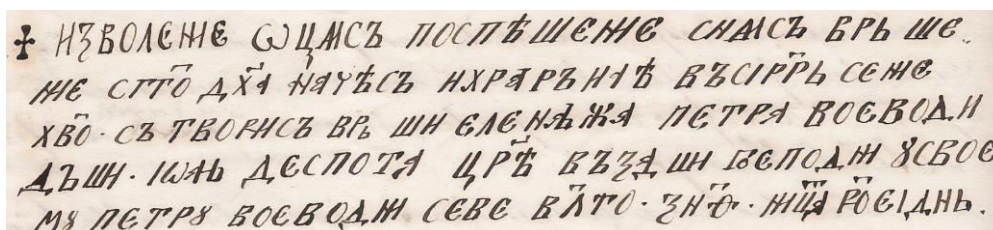 ☩ НꙀВОЛЕНІЕ ѠЦАИСЪ ПОСПѢШЕНІЕ СНАИСЪ ВРЬ ШЕ.
НІЕ СГТО҃ ДХ҃А НАЧѢСЪ НХРАРЪНАѢ ВЪСІРР҃Ь СЕЖЕ
ХВО҃· СЪ ТВОРИСЪ ВРЬ ШИ ЕЛЕНѢЖА ПЕТРА ВОЕВОДИ
ДЪШИ· ІѠАЬ ДЕСПОТА ЦРѢ҃ ВЪꙀА ШИ ГЕПОДЖИ ꙋСВОЕ
Мꙋ ПЕТРꙋ ВОЕВОДЖИ СЕВЕ ВЛ҃ТО· ꙀНѲ҃· МЩ҃А РО҃ЕІДНЬ.